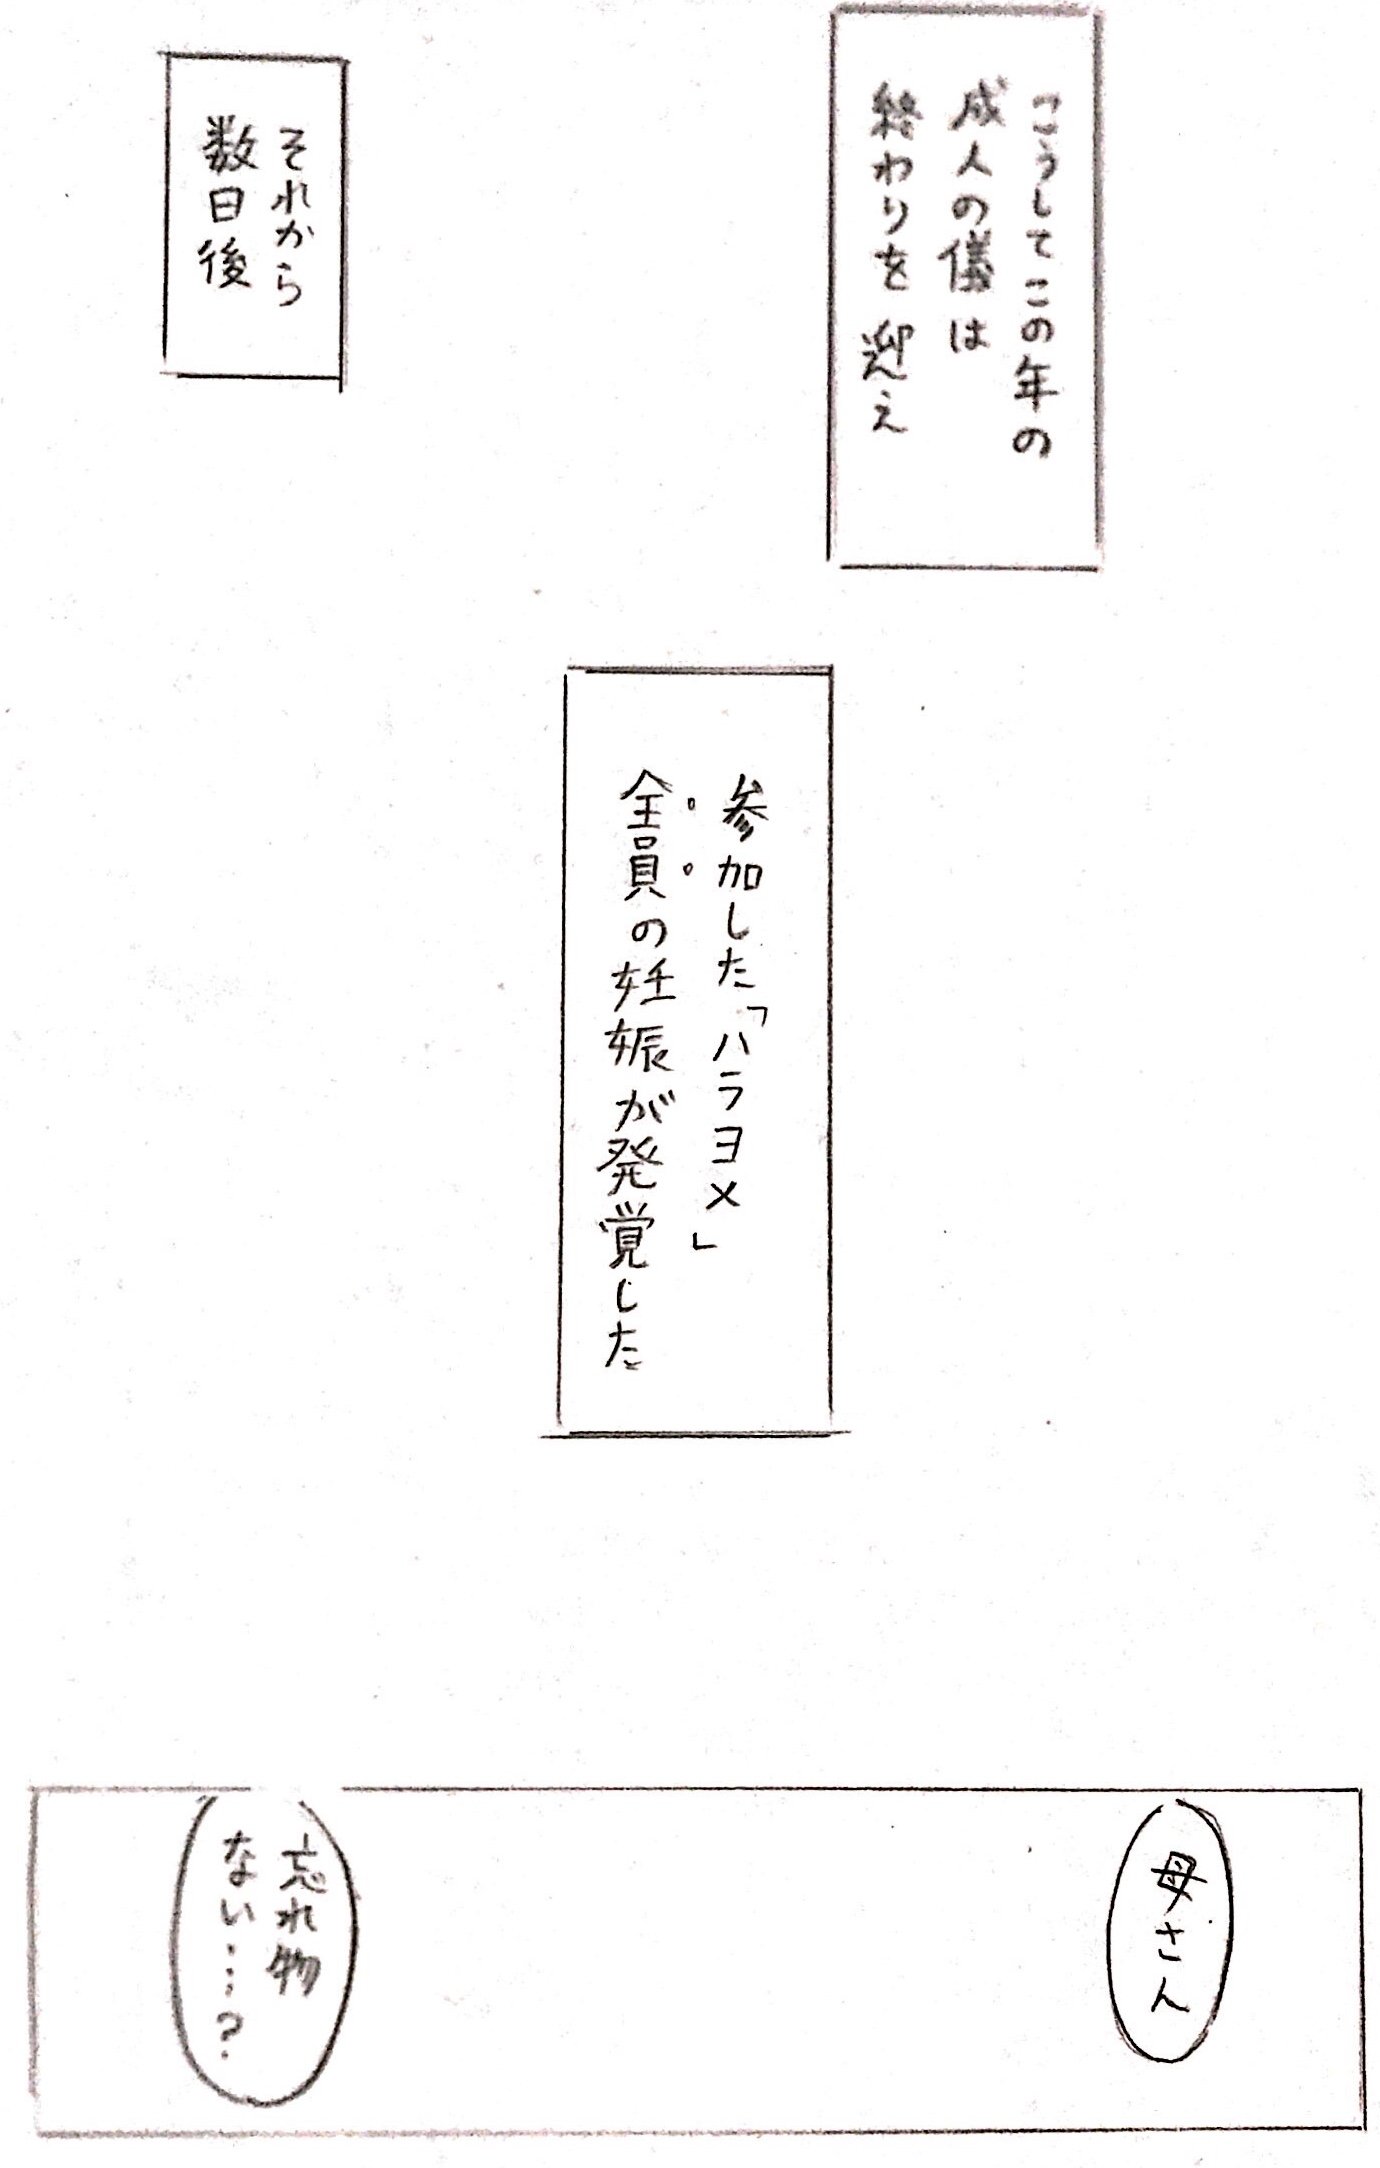 こうしてこの年の
成人の儀は
終わりを迎え
それから
数日後
参加した「ハラヨメ」
全員の妊娠が発覚した
母さん
忘れ物
ない…?